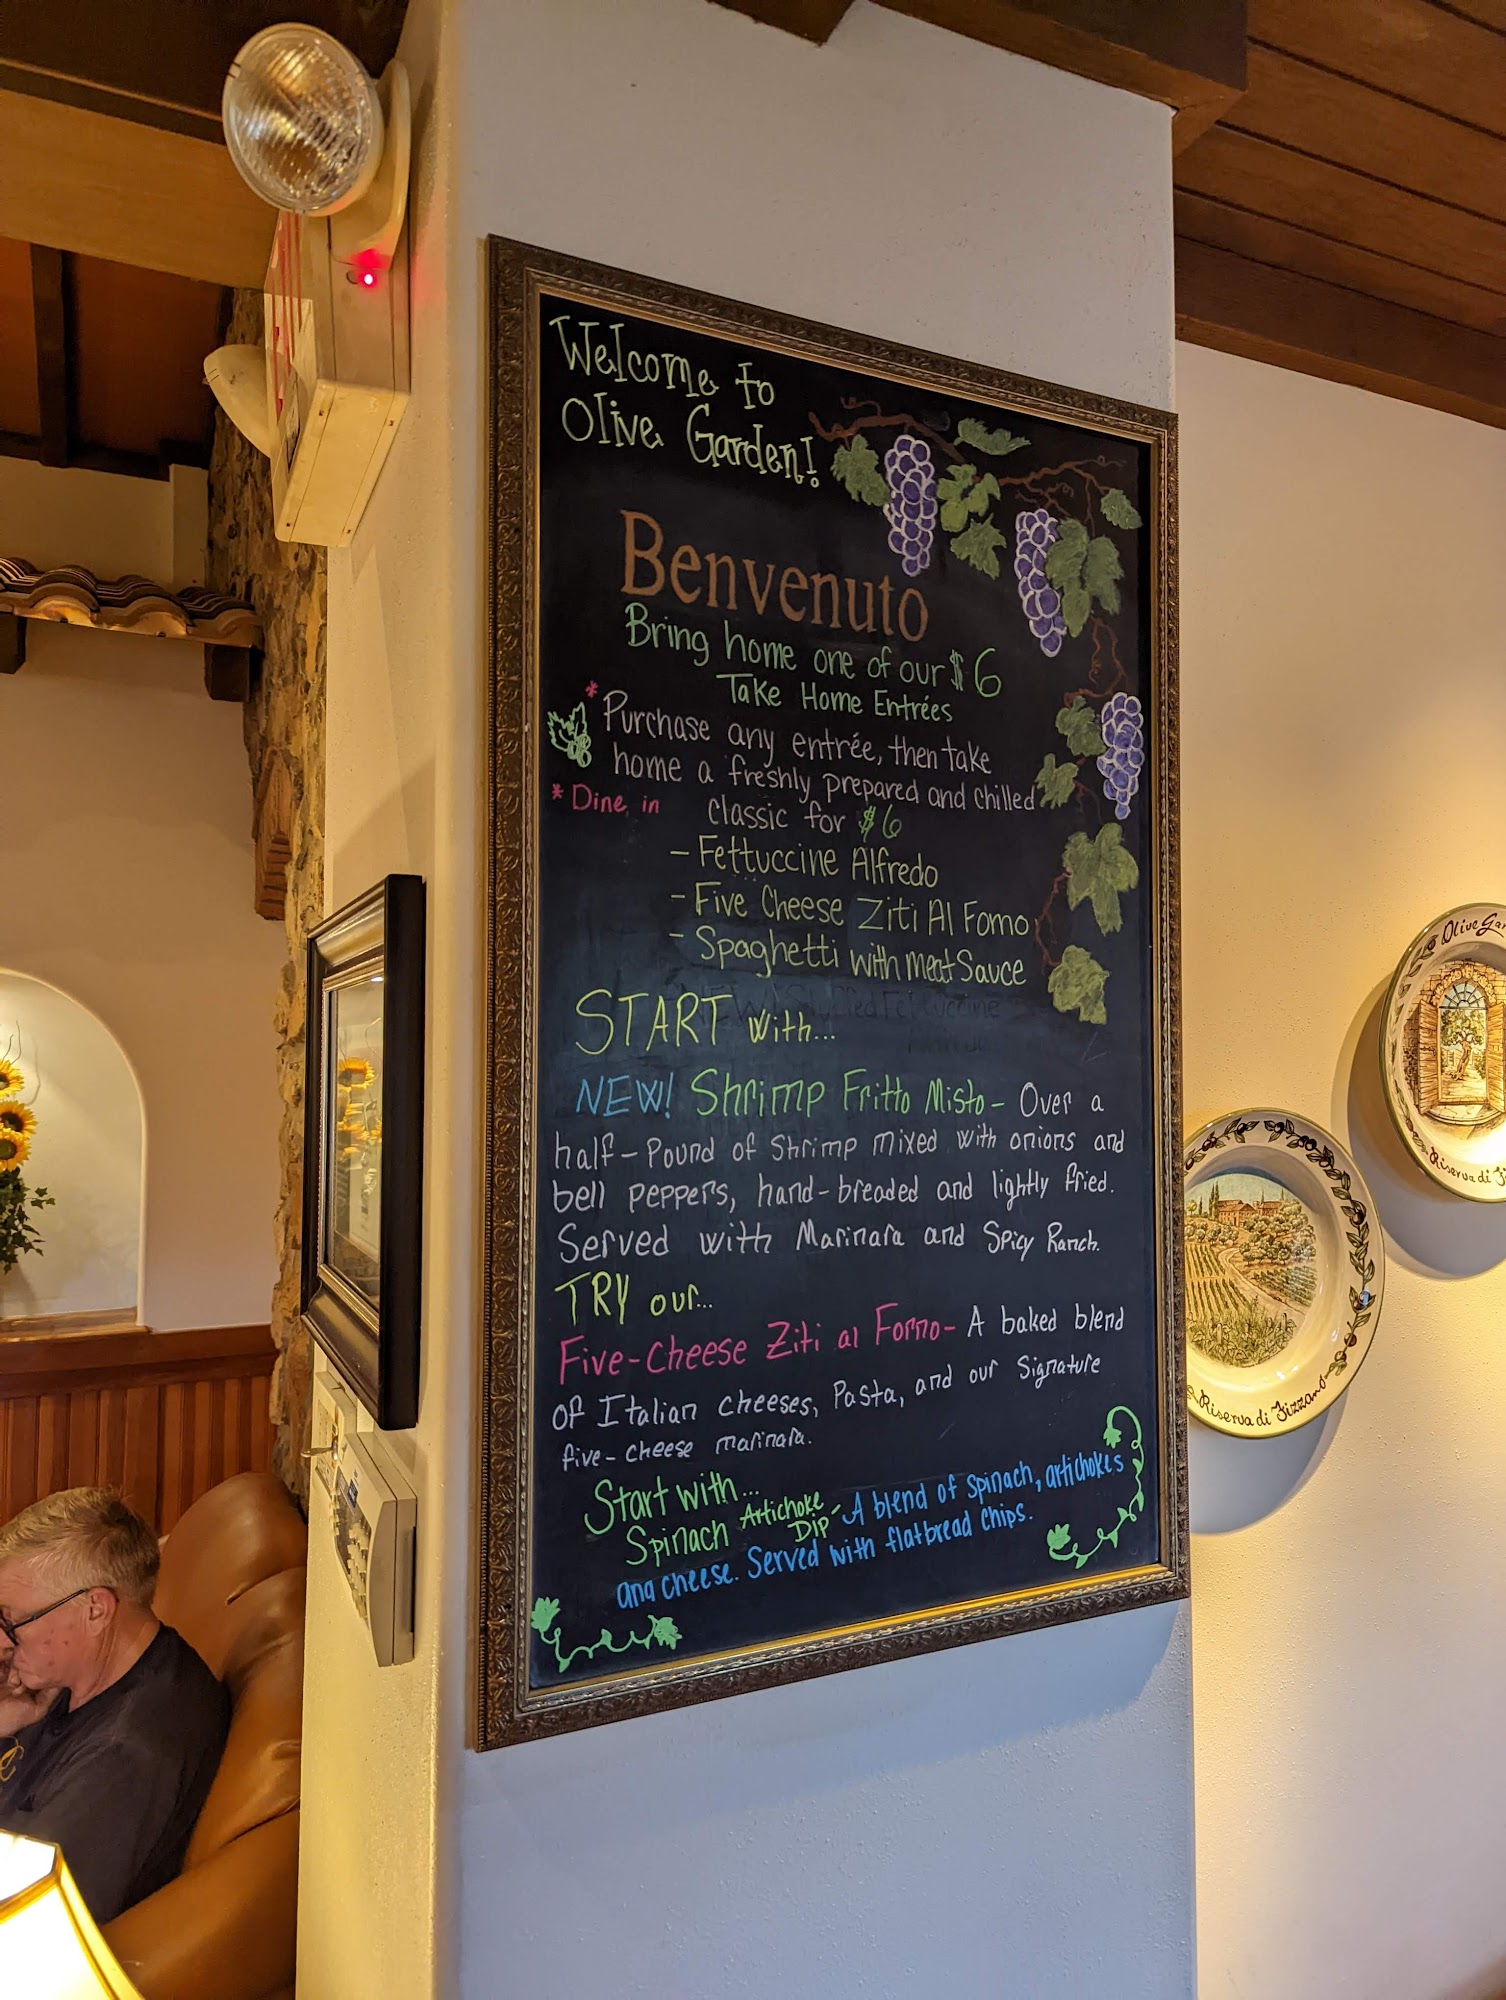 Welcome to
Olive Garden!
Benvenuto
Bring home one of our $6
Take Home Entrées
* Purchase any entrée, then take
home a freshly prepared and chilled
* Dine in
classic for $6
- Fettuccine Alfredo
- Five Cheese Ziti Al Forno
- Spaghetti with meat Sauce
START with...
NEW! Shrimp Fritto Misto - Over a
half-pound of Shrimp mixed with onions and
bell peppers, hand-breaded and lightly fried.
Served with Marinara and Spicy Ranch.
TRY our...
Five-Cheese Ziti al Forno - A baked blend
of Italian cheeses, Pasta, and our Signature
five-cheese marinara.
Start with...
Spinach Artichoke DIP - A blend of spinach, artichokes
and cheese. Served with flatbread chips.
Olive Gar
Riserva di Fi
Riserva di Fizzano